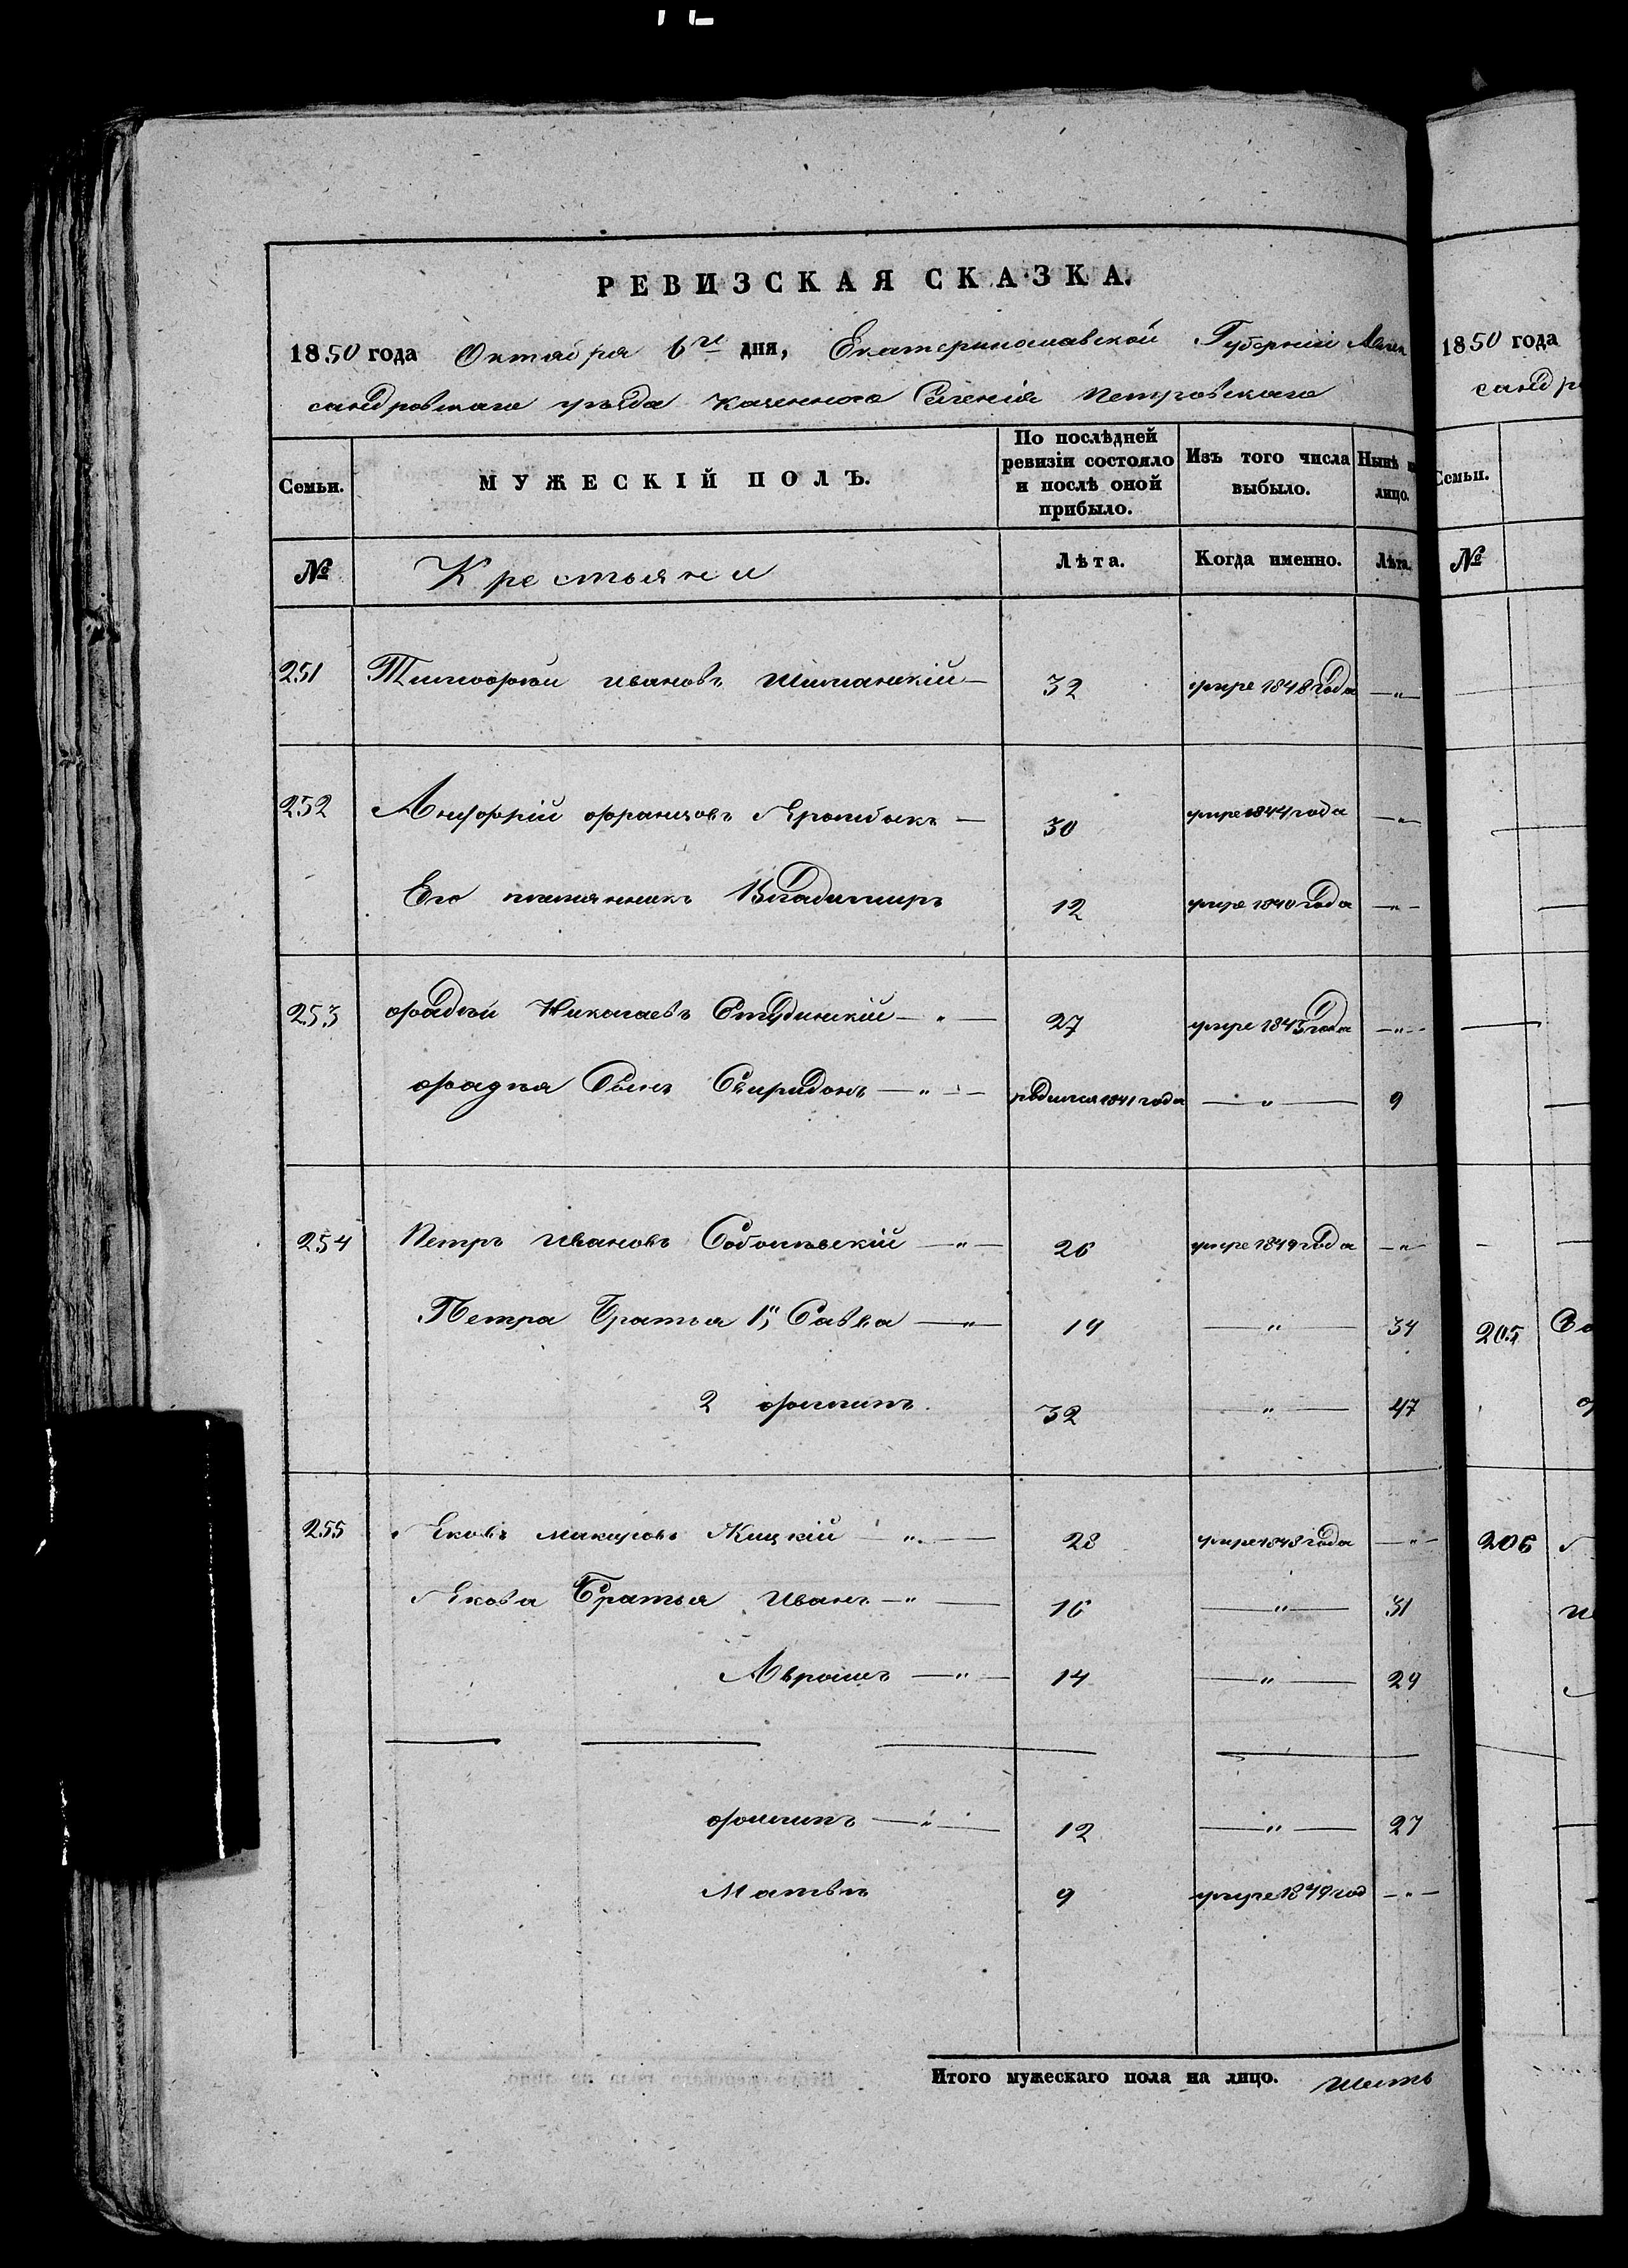 РЕВИЗСКАЯ СКАЗКА.
1850 года Октября 6го дня, Екатеринославской Губерніи Алек
сандровскаго уѣзда Казеннаго Селенія Петровскаго
Семьи. МУЖЕСКІЙ ПОЛЪ. По послѣдней ревизіи состояло и послѣ оной прибыло. Изъ того числа выбыло. Нынѣ лицо.
№ Крестьяни Лѣта. Когда именно. Лѣта.
251 Тимофѣй Ивановъ Шиманскій — 32 умре 1848 года — " —
252 Францовъ — 30 умре 1844 года — " —
Его племянникъ Владимиръ 12 умре 1840 года — " —
253 Фадѣй Николаевъ Студинскій — " — 27 умре 1843 года — " —
Фадѣя Сынъ Свиридонъ — " — родился 1841 года — " — 9
254 Петръ Ивановъ Соболѣвскій — " — 26 умре 1849 года — " —
Петра Братья 1й Савва — " — 19 — " — 34
2 Филипъ 32 — " — 47
255 Яковъ Макаровъ Жицкій — " — 28 умре 1848 года — " —
Якова Братья Иванъ — " — 16 — " — 31
Аврамъ — " — 14 — " — 29
Филипъ — " — 12 — " — 27
Матвѣй 9 умре 1849 год — " —
Итого мужескаго пола на лицо. шесть
1850 года
сандр
Семьи.
№
205
206